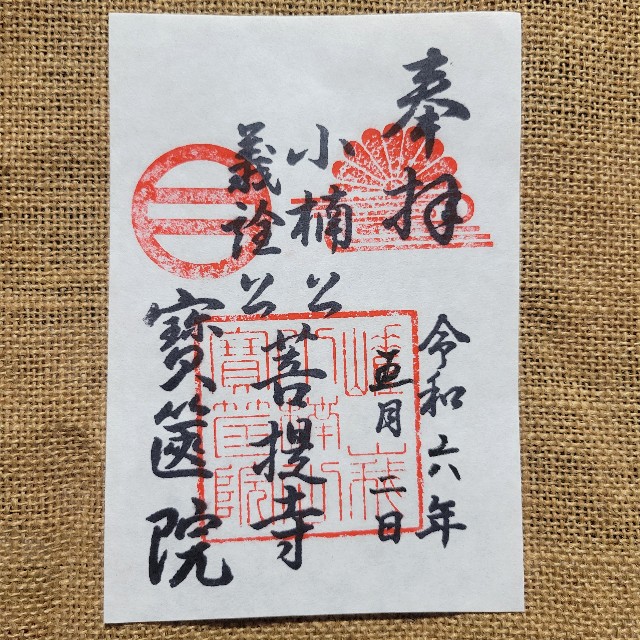 奉拝
令和六年
五月二日
小楠公
義詮公
菩提寺
寳篋院